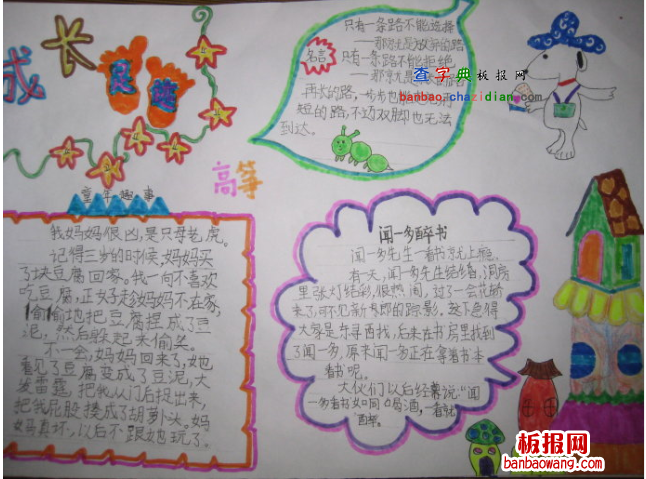 成长
足迹
名言
只有一条路不能选择
——那就是放弃的路
只有一条路不能拒绝
——那就是
再长的路,一步步也能
短的路,不迈双脚也无法
到达。
查字典板报网
banbao.chazidian.com
童年趣事
我妈妈很凶,是只母老虎。
记得三岁的时候,妈妈买
了块豆腐回家。我一向不喜欢
吃豆腐,正好趁妈妈不在家,
偷偷地把豆腐捏成了豆
泥,然后躲起来偷笑。
不一会,妈妈回来了,她
看见了豆腐变成了豆泥,大
发雷霆,把我从门后捉出来,
把我屁股揍成了胡萝卜。妈
妈真坏,以后不跟她玩了。
闻一多醉书
闻一多先生一看书就上瘾。
有一天,闻一多先生结婚,洞房
里张灯结彩,很热闹,过了一会花轿
来了,可不见新郎的踪影,这下急得
大家是东寻西找,后来在书房里找到
了闻一多,原来闻一多正在拿着书本
看书呢。
大伙们以后经常说:“闻
一多看书如同喝酒,一看就
醉。
板报网
banbaowang.com